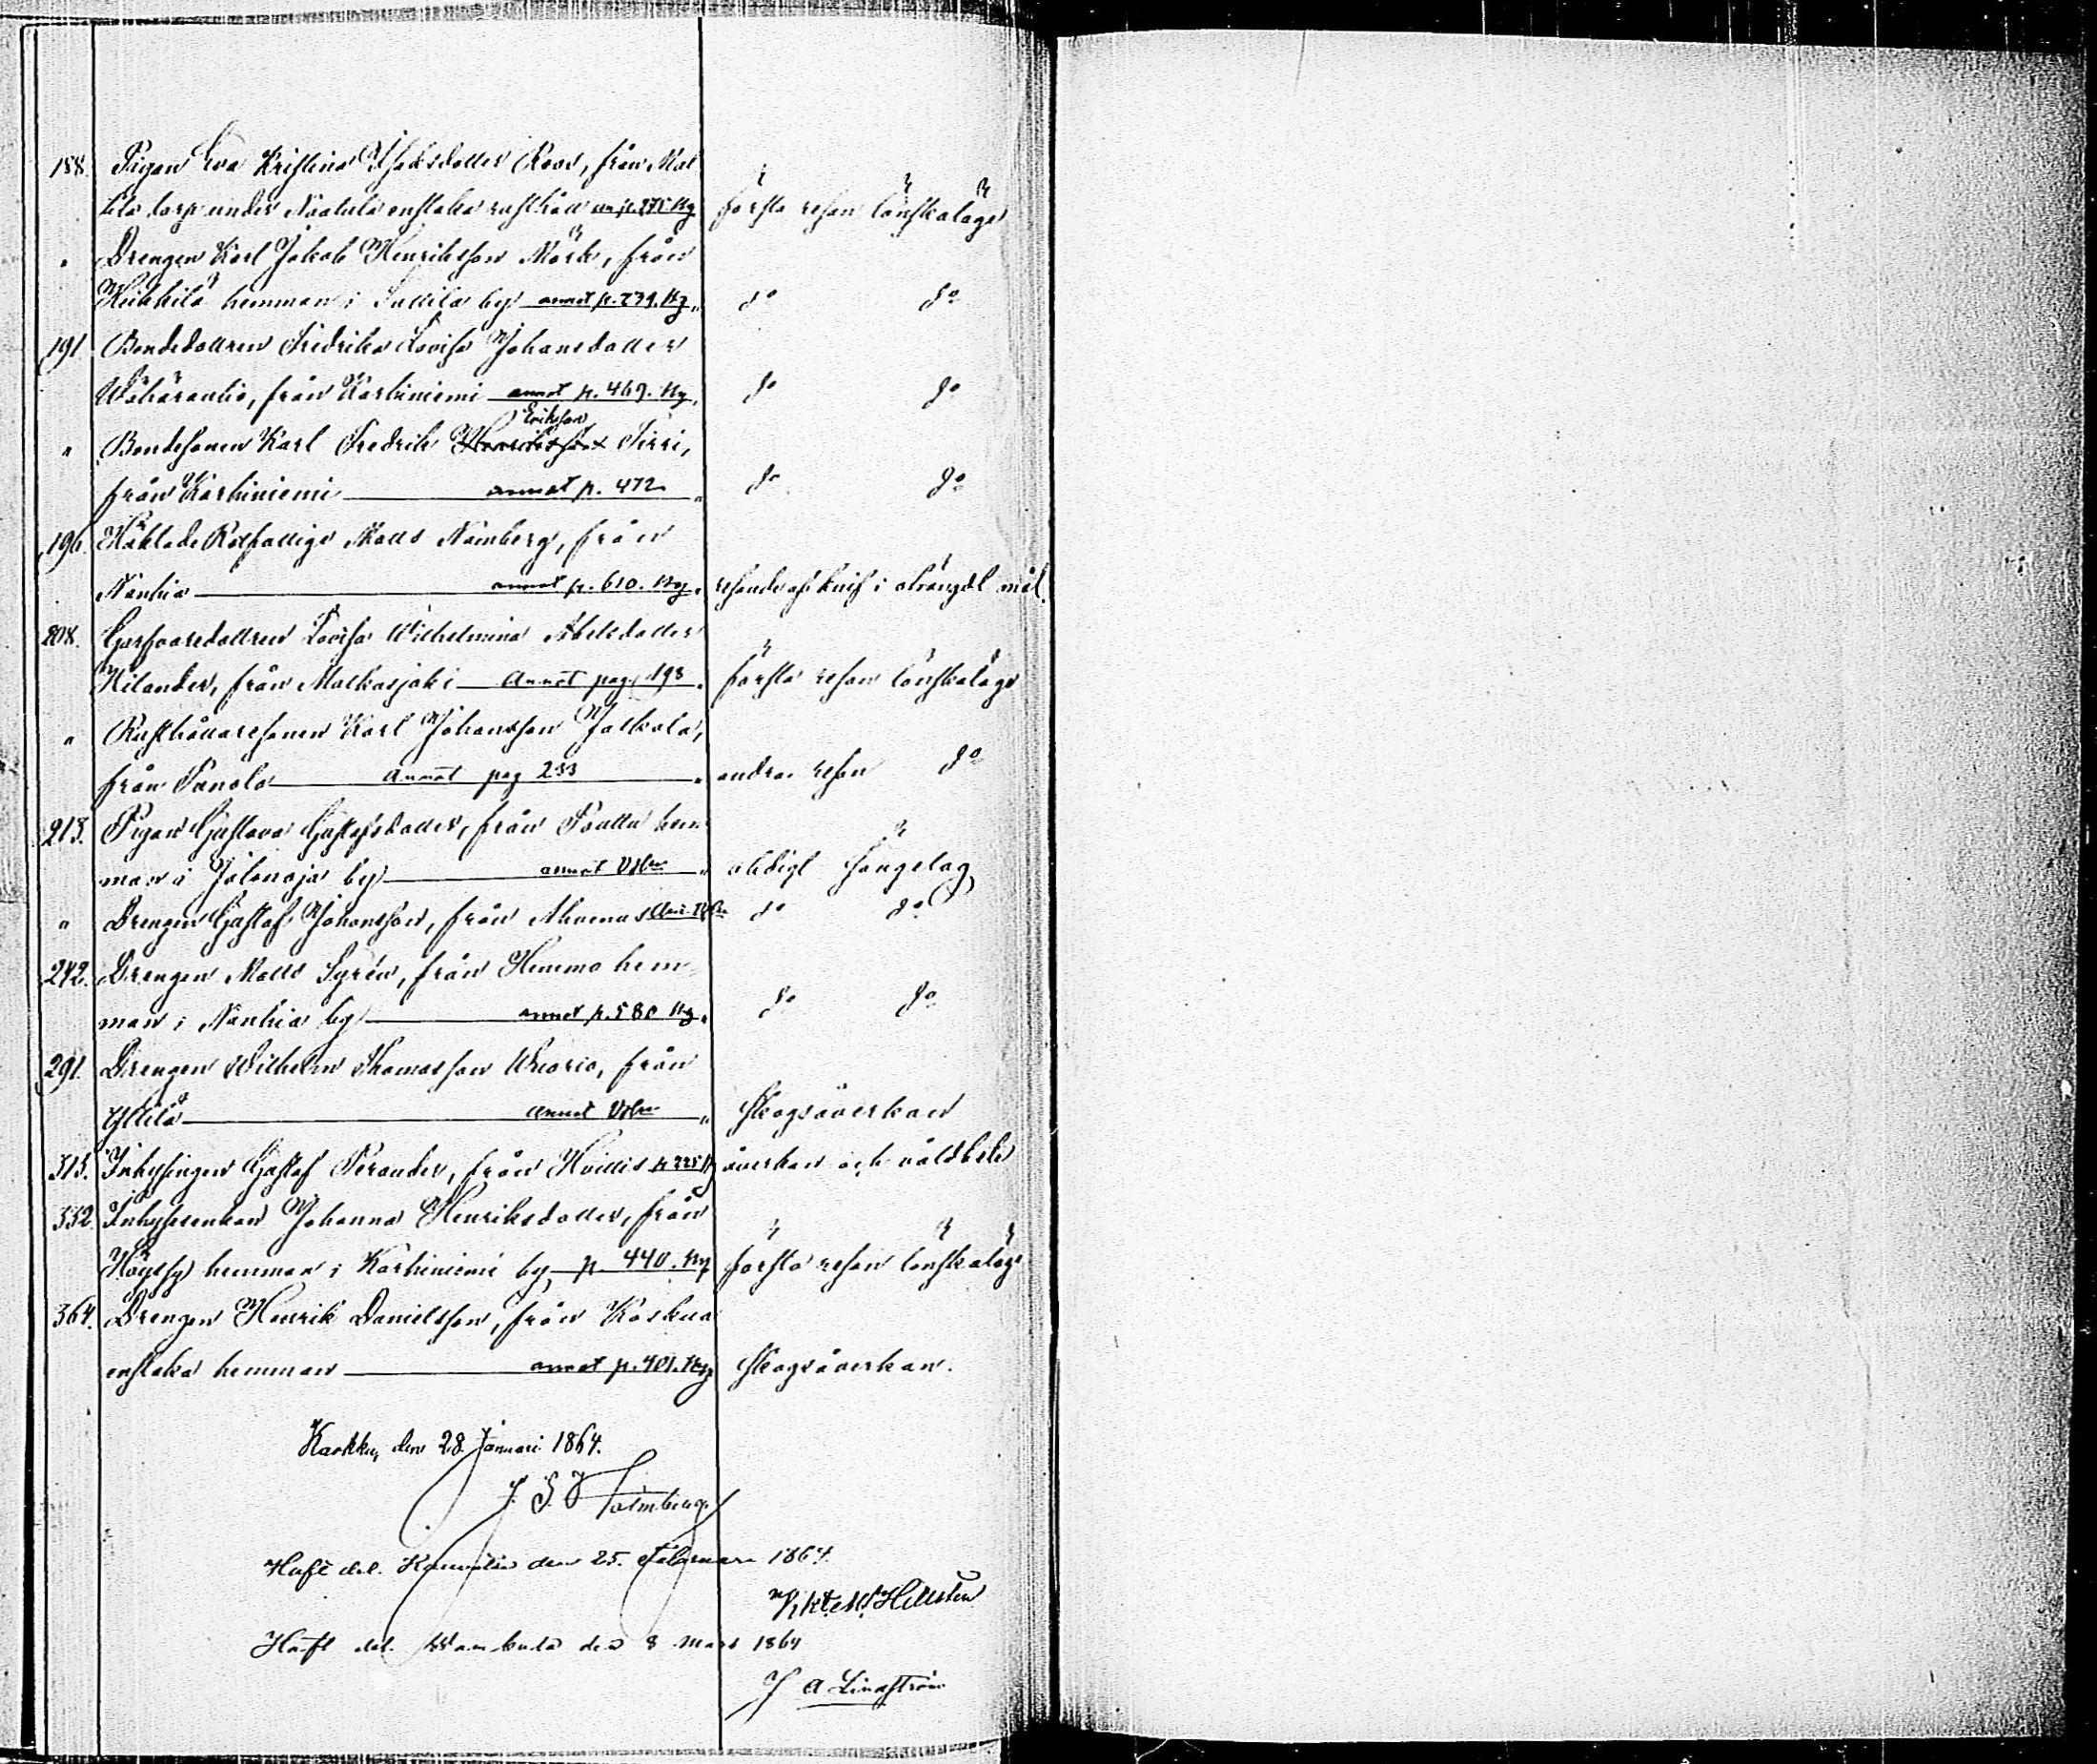 188. Pigan Eva Kristina Isaksdotter Roos, från Mat
tila torp under Naatula enstaka rusthåll an. p. 275 Kg första resan lönskaläge
" Drengen Karl Jakob Henriksson Mörk, från
Heikkilä hemman i Suttila by annot p. 279. Kg. do do
191. Bondedottren Fredrika Lovisa Johansdotter
Wähärautio, från Karhiniemi annot p. 469. Kg. do do
Eriksson
" Bondesonen Karl Fredrik Henriksson Sirri,
från Karhiniemi annot p. 472 " do do
196. Häktade Rotfattige Matts Nämberg, från
Nanhia annot p. 610. Kg. " knif i oträngdt mål.
208. Lovisa Wilhelmina Abelsdotter
Kilander, från Matkusjoki Annot pag. 198 " första resan lönskaläge
" Rusthållaresonen Karl Johansson Jalkala,
från Annot pag 233 " andra resan do
213. Pigan Gustava Gustafsdotter, från hem
man i by annot " otidigt sängelag
" Drengen Gustaf Johansson, från do do
242. Drengen Matts Syrén, från Hemmo hem
man i Nanhia by annot p. 580 Kg. do do
291. Drengen Wilhelm Thomasson Wuorio, från
annot " Skogsåverkan
313. Inhysingen Gustaf Perander, från Hvittis p 225 åverkan och våldbete
332. Inhyseenkan Johanna Henriksdotter, från
hemman i Karhiniemi by p. 440. Kg första resan lönskaläge
364. Drengen Henrik Danielsson, från Koskua
enstaka hemman annot p. 401. Kg Skogsåverkan.
Karkku, den 28 Januari 1864.
Haft del. den 25. Februari 1864.
Haft del. den 8 Mars 1864
J A Lindström